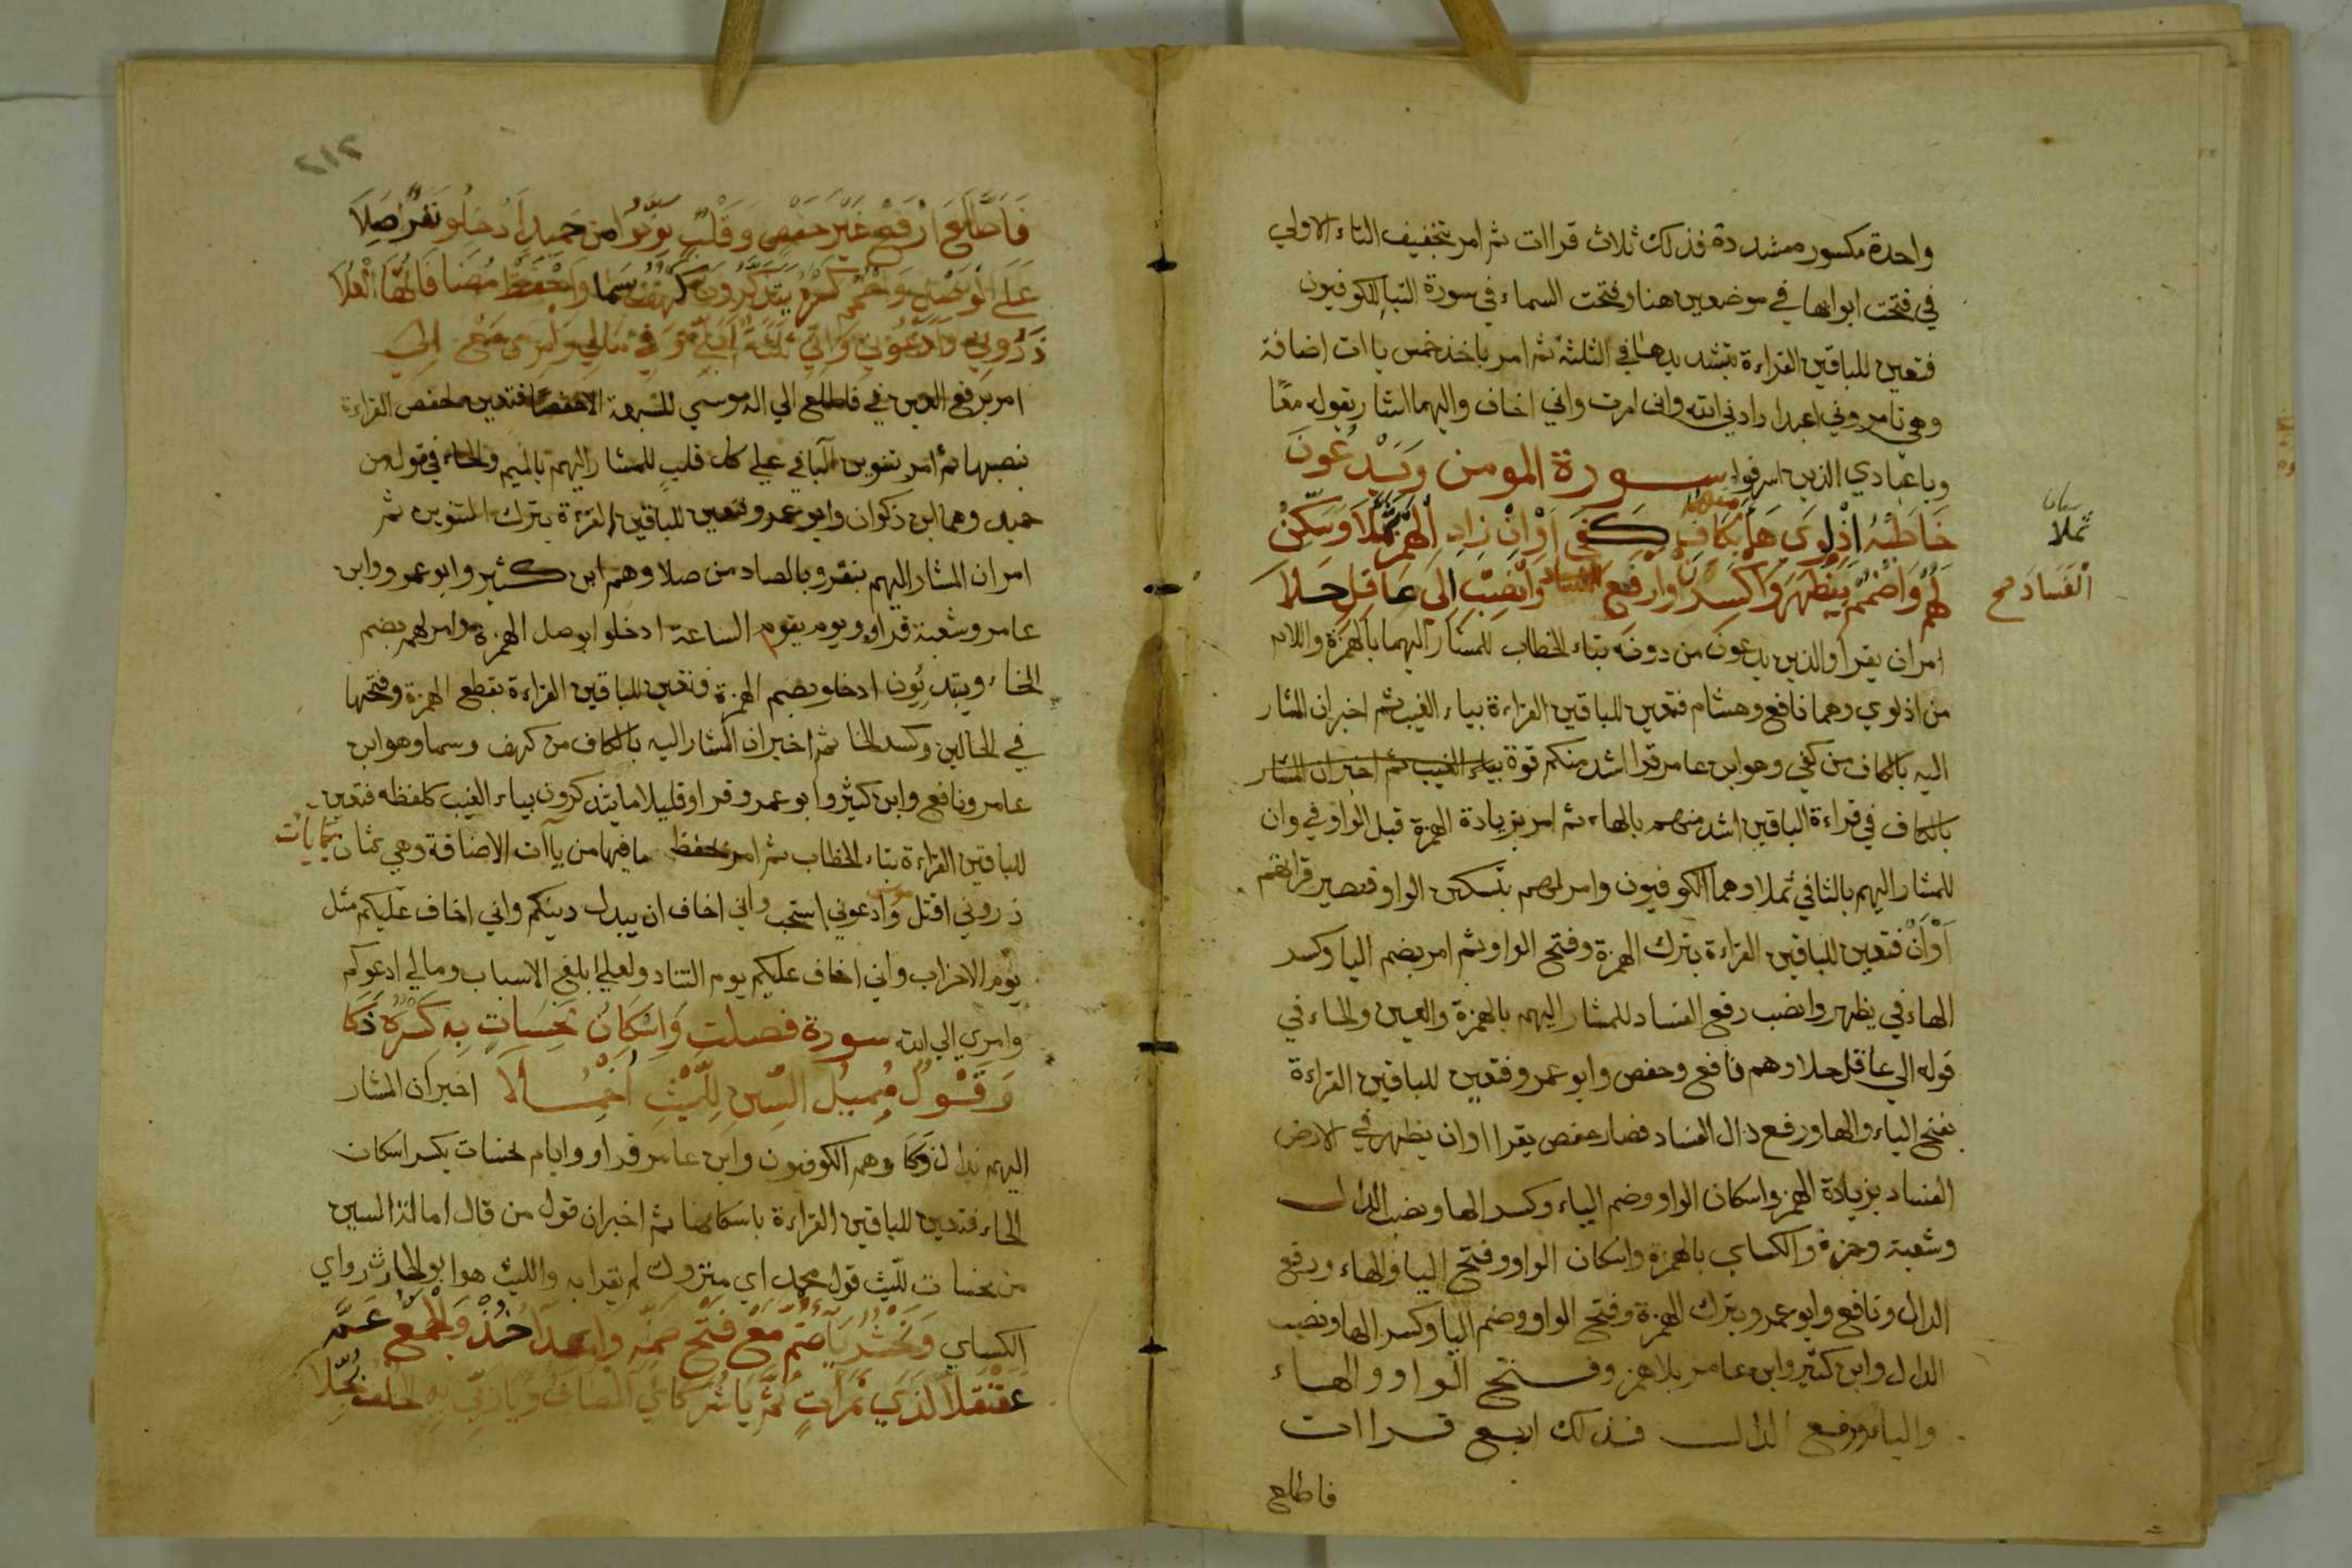 واحدة مكسورة مشددة فذلك ثلاث قراات ثم امر بتخفيف التاء الاولي
في فتحت ابوابها في موضعين هنا وفتحت السماء في سورة النبا للكوفيين
فتعين للباقين القراءة بتشديدها في الثلثة ثم امر باخذ خمس ياات اضافة
وهي تامروني اعبد ارادني الله واني امرت واني اخاف واليهما اشار بقوله معًا
وياعبادي الذين اسرفوا سورة المومن وَيَدْعُونَ
خَاطَبْ اذْلوَي هَا بكَافٍ كَفَى اَوْ اَنْ زِادِ الهَمْزَ ثُمَّلَا وَسَكِّنْ
لَهُمْ وَاضْمُمْ بِيَظْهَرَ وَاكْسِرَنْ وَارْفَعِ الفساد وَانْصِبْ اِلَى عَاقِلٍ حَلَا
ثملا
الْفَسَادَ صح
امر ان يقرا والذين يدعون من دونه بتاء الخطاب للمشار اليهما بالهمزة واللام
من اذلوي وهما نافع وهشام فتعين للباقين القراءة بياء الغيب ثم اخبر ان المشار
اليه بالكاف من كفي وهو ابن عامر قرا اشد منكم قوة بياء الغيب ثم اخبر ان المشار
بالكاف في قراءة الباقين اشد منهم بالهاء ثم امر بزيادة الهمزة قبل الواو في وان
للمشار اليهم بالثا في ثملا وهما الكوفيون وامر لهم بتسكين الواو فتصير قراتهم
اَوْ اَنْ فتعين للباقين القراءة بترك الهمزة وفتح الواو ثم امر بضم اليا وكسر
الهاء في يظهر وانصب رفع الفساد للمشار اليهم بالهمزة والعين والحاء في
قوله الي عاقل حلا وهم نافع وحفص وابو عمرو فتعين للباقين القراءة
بفتح الياء والها ورفع دال الفساد فصار حفص يقرا او ان يظهر في الارض
الفساد بزيادة الهمز واسكان الواو وضم الياء وكسر الها ونصب الدال
وشعبة وحمزة والكساي بالهمزة واسكان الواو وفتح اليا والهاء ورفع
الدال ونافع وابو عمرو بترك الهمزة وفتح الواو وضم اليا وكسر الها ونصب
الدال وابن كثير وابن عامر بلا همز وفتح الواو والهاء
والياء ورفع الدال فذلك اربع قراات
فاطلع
٢١٢
فَاَطَّلِعَ ارْفَعْ غَيْرَ حَفْصٍ وَقَلْبِ نَوِّنُوا من حَمِيدٍ اَدْخِلُو نَفَرٌ صِلَا
عَلَى الْوَصْلِ وَاضْمُمْ كَسْرَهُ يَتَذَكَّرُونَ كَهْفٌ سَمَا وَاحْفَظْ مُضَافَاتِهَا الْعُلَا
ذَرُونِي وَادْعُونِي وَاِنِّي ثَلَاثَةٌ لَعَلِّي وَفِي مَالِي وَاَمْرِي مَعْ اِلَى
امر برفع العين في فاطلع الي اله موسي للسبعة الا حفصا فتعين لحفص القراءة
بنصبها ثم امر بتنوين البا في علي كل قلبٍ للمشار اليهم بالميم والحاء في قوله من
حميد وهما ابن ذكوان وابو عمرو وتعين للباقين القراءة بترك التنوين ثم
امر ان المشار اليهم بنفر وبالصاد من صلا وهم ابن كثير وابو عمرو وابن
عامر وشعبة قراو ويوم يقوم الساعة ادخلوا بوصل الهمزة وامر لهم بضم
الخاء ويبتدئون ادخلو بضم الهمزة وتعين للباقين القراءة بقطع الهمزة وفتحها
في الحالين وكسر الخا ثم اخبر ان المشار اليه بالكاف من كهف وسما وهو ابن
عامر ونافع وابن كثير وابو عمرو قراو قليلا ما يتذكرون بياء الغيب كلفظه فتعين
للباقين القراءة بتاء الخطاب ثم امر بحفظ ما فيها من ياآت الاضافة وهي ثمان ياات
ذروني اقتل موسي وادعوني استجب واني اخاف ان يبدل دينكم واني اخاف عليكم مثل
يوم الاحزاب واني اخاف عليكم يوم التناد ولعلي ابلغ الاسباب ومالي ادعوكم
وامري الي الله سورة فصلت وَاِسْكَانُ نَحِسَاتٍ بِهِ كَسْرُهُ ذَكَا
وَقَوْلُ مُمِيلِ السِّينِ لِلَّيْثِ اُخْمِلَا اخبر ان المشار
اليهم بذال ذكا وهم الكوفيون وابن عامر قراو وايام نحسات بكسر اسكان
الحاء فتعين للباقين القراءة باسكانها ثم اخبر ان قول من قال امالة السين
من نحسات لليث قول مخمل اي متروك لم يقرا به والليث هو ابو الحارث رواي
الكساي وَنَحْشُرُ يَاءٌ ضُمَّ مَعْ فَتْحِ ضَمِّهِ وَاَعْدَاءُ خُذْ وَالْجَمْعُ عَمَّ
عَقَنْقَلَا لَدَى ثَمَرَاتٍ ثُمَّ يَا شُرَكَائِيَ الْمُضَافُ وَيَا رَبِّي بِهِ الْخُلْفُ بُجِّلَا